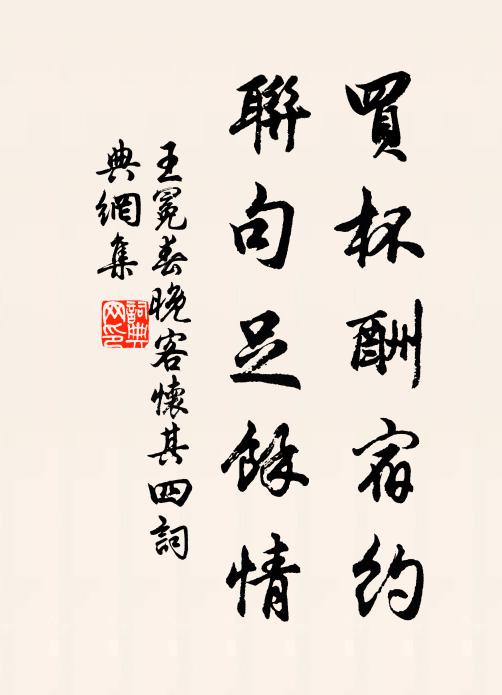 買杯酬宿約
聯句足餘情
王冕春晚客懷其四詞
典網集
詞典
网印